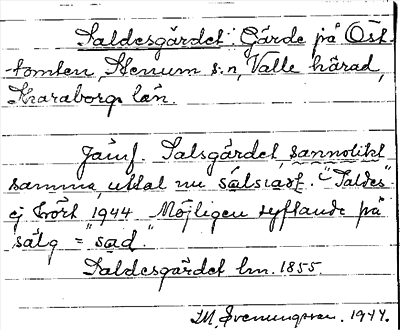 Saldesgärdet: Gärde på Öst-
-tomten, Stenum s:n, Valle härad,
Skaraborgs län.
Jämf. Salsgärdet, sannolikt
samma, uttal nu "Saldes"
ej hört 1944 Möjligen syftande på
sälg = "säd".
Saldesgärdet lm. 1855.
M. Svenungsson. 1944.